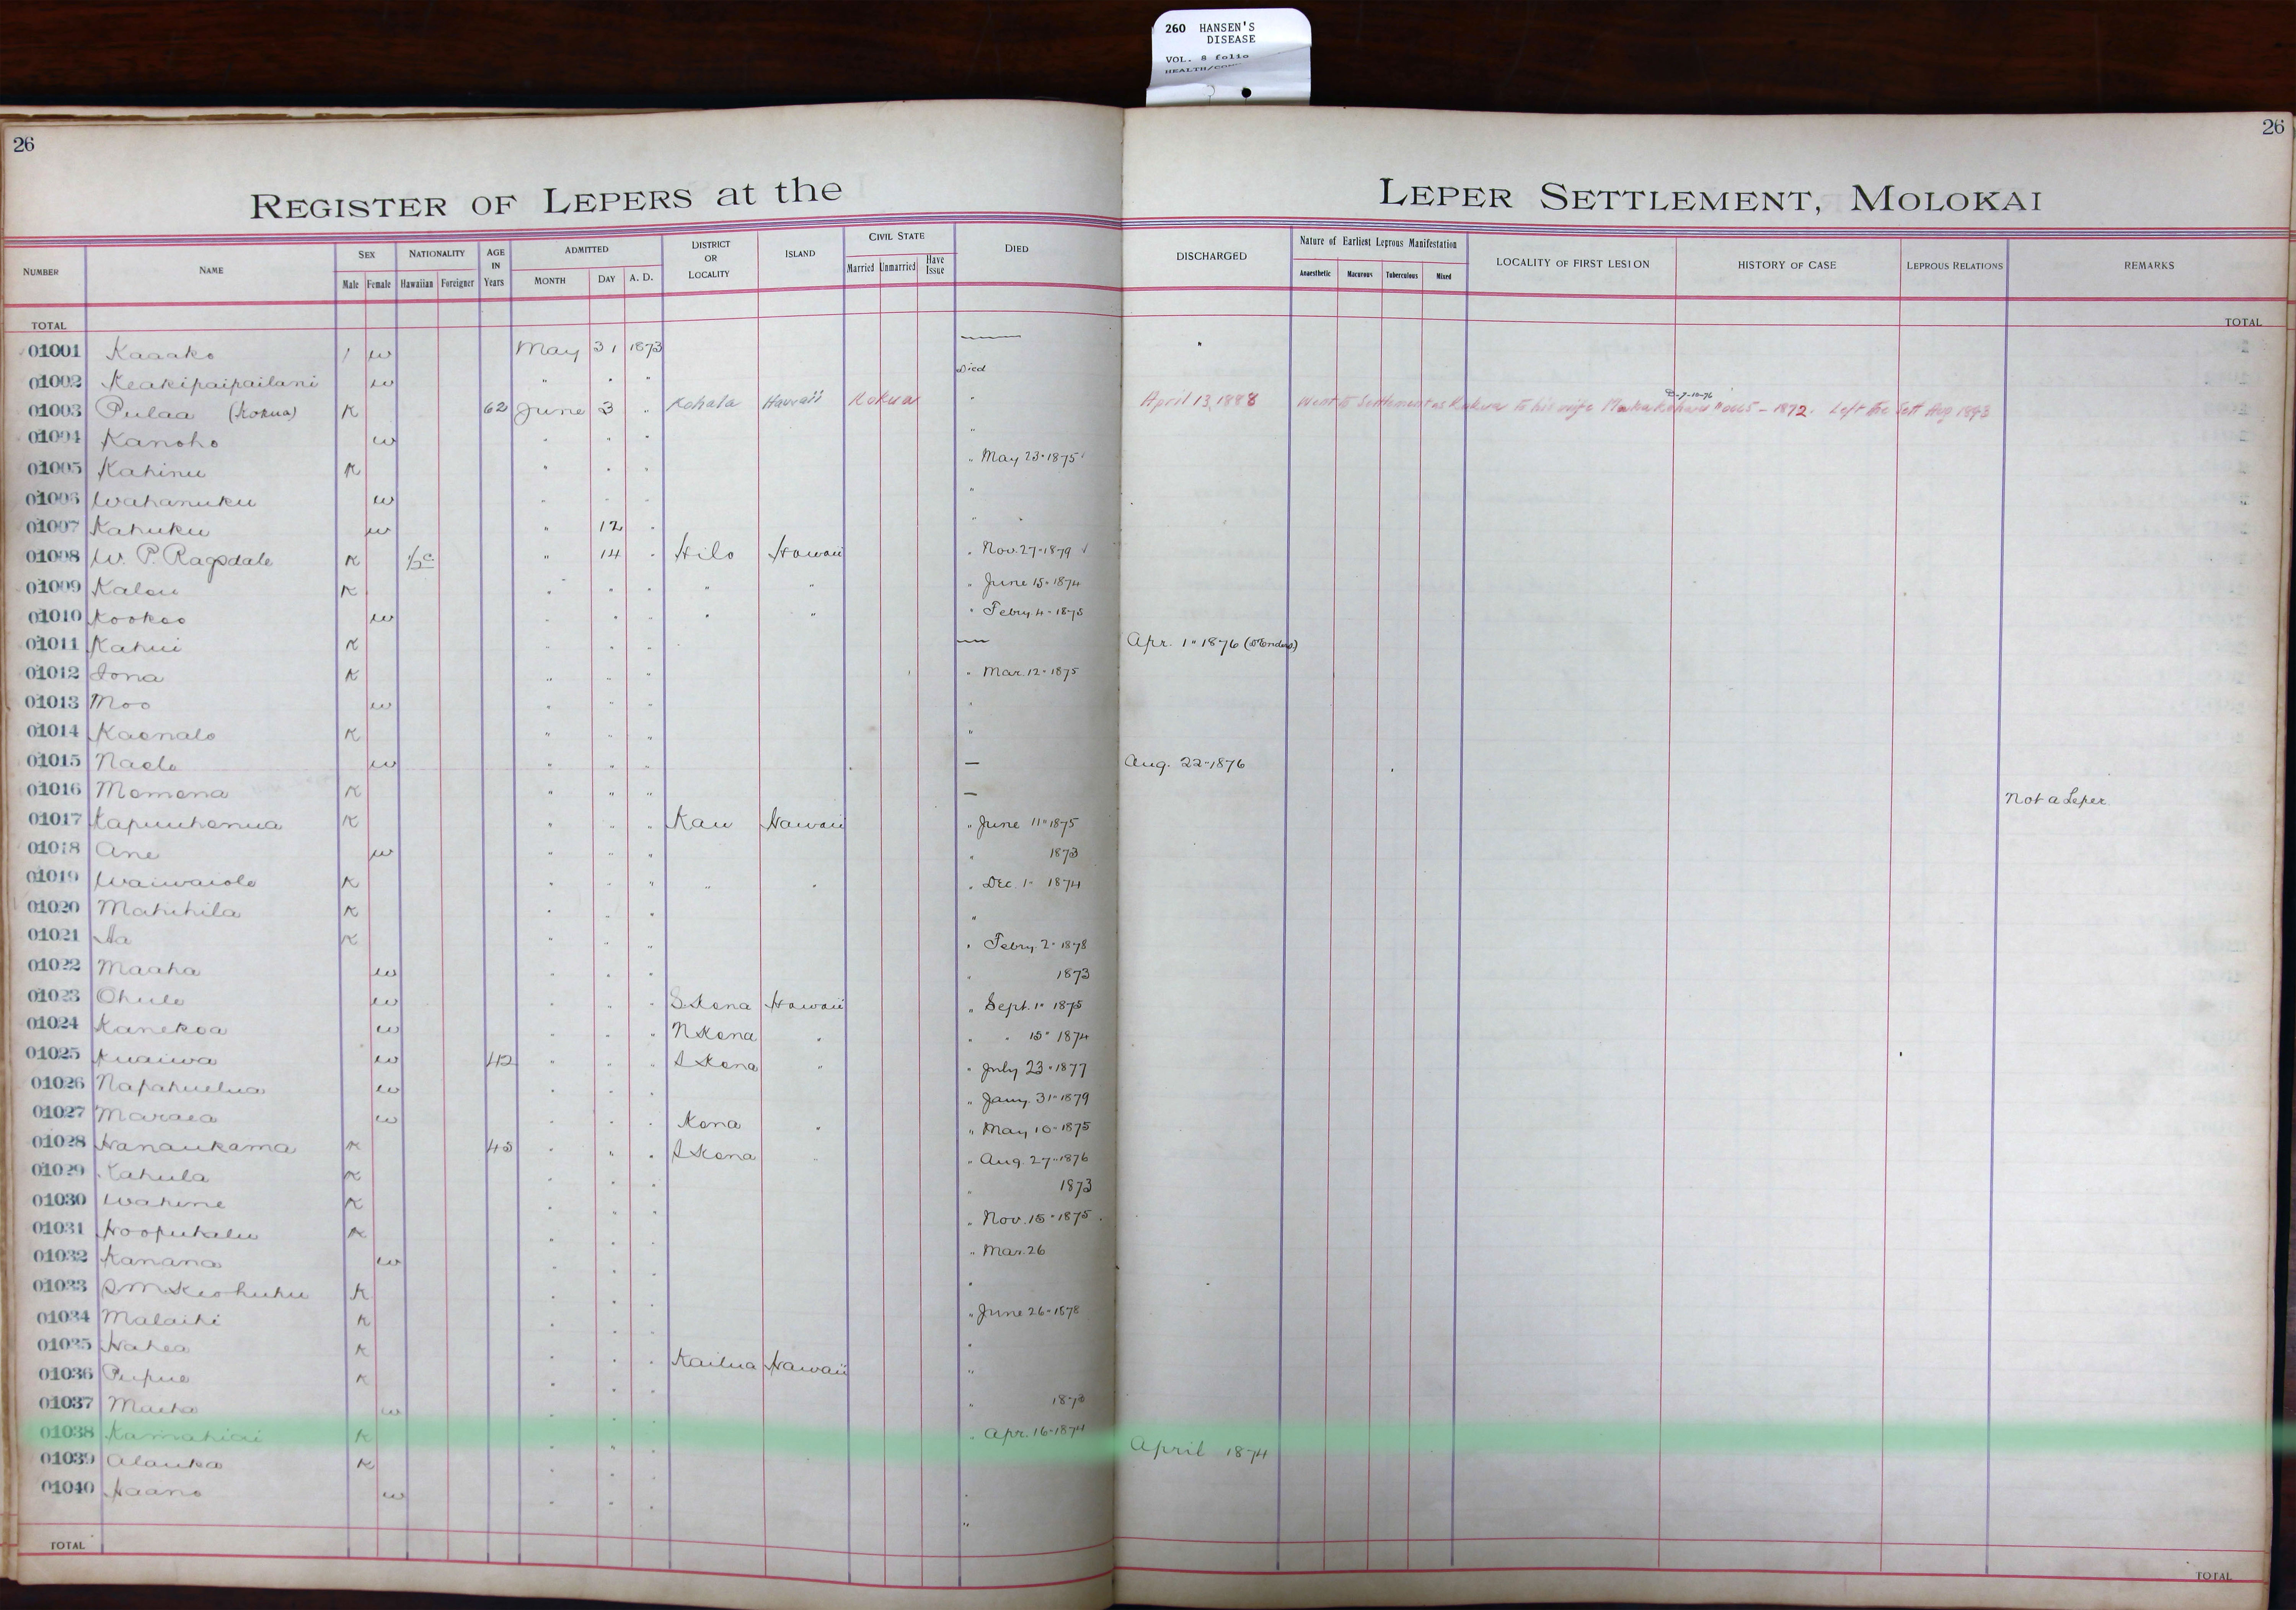 260 HANSEN'S
DISEASE
VOL. 8 folio
26
26
REGISTER OF LEPERS at the LEPER SETTLEMENT, MOLOKAI
NUMBER NAME SEX NATIONALITY AGE IN Years ADMITTED DISTRICT OR LOCALITY ISLAND CIVIL STATE DIED DISCHARGED Nature of Earliest Leprous Manifestation LOCALITY OF FIRST LESION HISTORY OF CASE LEPROUS RELATIONS REMARKS
Male Female Hawaiian Foreigner MONTH DAY A. D. Married Unmarried Have Issue Anaesthetic Macurous Tuberculous Mixed
TOTAL TOTAL
01001 Kaaako / w May 31 1873 —
01002 Keakipaipailani w " " " Died
01003 Pulaa (Kokua) K 62 June 3 " Kohala Hawaii Kokua " April 13, 1888 Went to Settlement as Kokua to his wife 1872. Left the Sett Aug 1893
01004 Kanoho w " " " "
01005 Kahinu K " " " " May 23 " 1875
01006 Wahanuku w " " " "
01007 Kahuku w " 12 " "
01008 W. P. Ragsdale K ½ c " 14 " Hilo Hawaii " Nov. 27 " 1879
01009 Kalou K " " " " " " June 15 " 1874
01010 Kookoo w " " " " " " Febry 4 - 1875
01011 Kahui K " " " — Apr. 1 " 1876
01012 Iona K " " " " Mar. 12 " 1875
01013 Moo w " " " "
01014 Kaonalo K " " " "
01015 Naelo w " " " — Aug. 22 - 1876
01016 Momona K " " " — Not a Leper
01017 Kapuuhonua K " " " Kau Hawaii " June 11 " 1875
01018 Ane w " " " " 1873
01019 Waiwaiole K " " " " " " Dec. 1 " 1874
01020 Mahihila K " " " "
01021 Aa K " " " " Febry. 2 " 1878
01022 Maaha w " " " " 1873
01023 Ohule w " " " S Kona Hawaii " Sept. 1 " 1875
01024 Kanekoa w " " " N Kona " " " 15 " 1874
01025 Kuaiwa w 42 " " " S Kona " " July 23 " 1877
01026 Napahuelua w " " " " Jany. 31 " 1879
01027 Maraea w " " " Kona " " May 10 " 1875
01028 Hanaukama K 45 " " " S Kona " " Aug. 27 " 1876
01029 Kahula K " " " " 1873
01030 Wahine K " " " " Nov. 15 " 1875
01031 Hoopukalu K " " " " Mar. 26
01032 Kanana w " " " "
01033 K " " " " June 26 " 1878
01034 Malaihi K " " " "
01035 Hahea K " " " Kailua Hawaii "
01036 Pupue K " " " " 1873
01037 w " " " " Apr. 16 " 1874
01038 Kamahiai K " " " April 1874
01039 Alauka K " " " "
01040 Haano w " " " "
TOTAL TOTAL